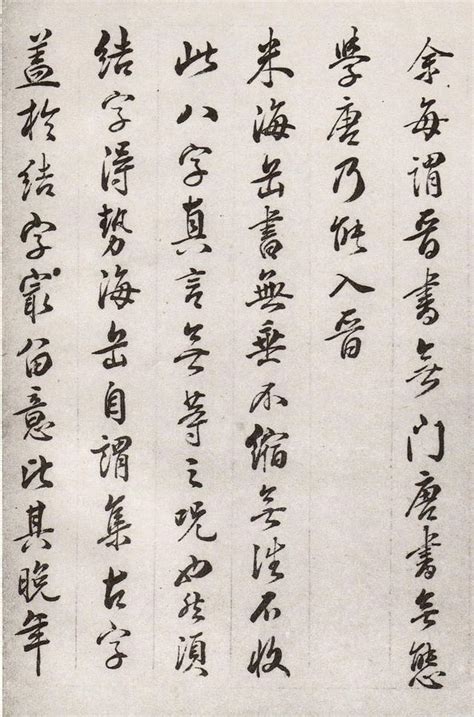 余每謂晉書無門唐書無態
學唐乃能入晉
米海岳書無垂不縮無往不收
此八字真言無等之呪也然須
結字得勢海岳自謂集古字
蓋於結字最留意此其晚年